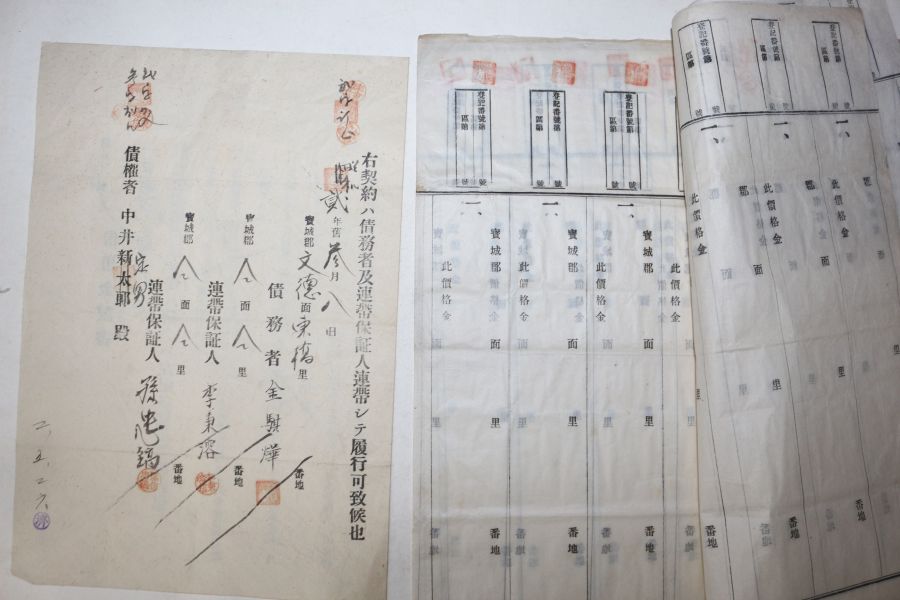 右契約ハ債務者及連帶保証人連帶シテ履行可致候也
昭和貳年舊叄月八日
寶城郡文德面東橋里 番地
債務者 金騏燁
寶城郡仝面仝里 番地
連帶保証人 李秉溶
寶城郡仝面仝里 番地
連帶保証人
債權者 中井新太郎 殿
二、五、二六
登記番號第 號
區第
登記番號第 號
區第
登記番號第 號
區第
一、寶城郡 面 里 番地
此價格金
一、寶城郡 面 里 番地
此價格金
一、寶城郡 面 里 番地
此價格金
登記番號第 號
區第
登記番號第 號
區第
登記番號第 號
一、 郡 面 里 番地
此價格金
一、 郡 面 里 番地
此價格金
一、 郡 面 里 番地
此價格金